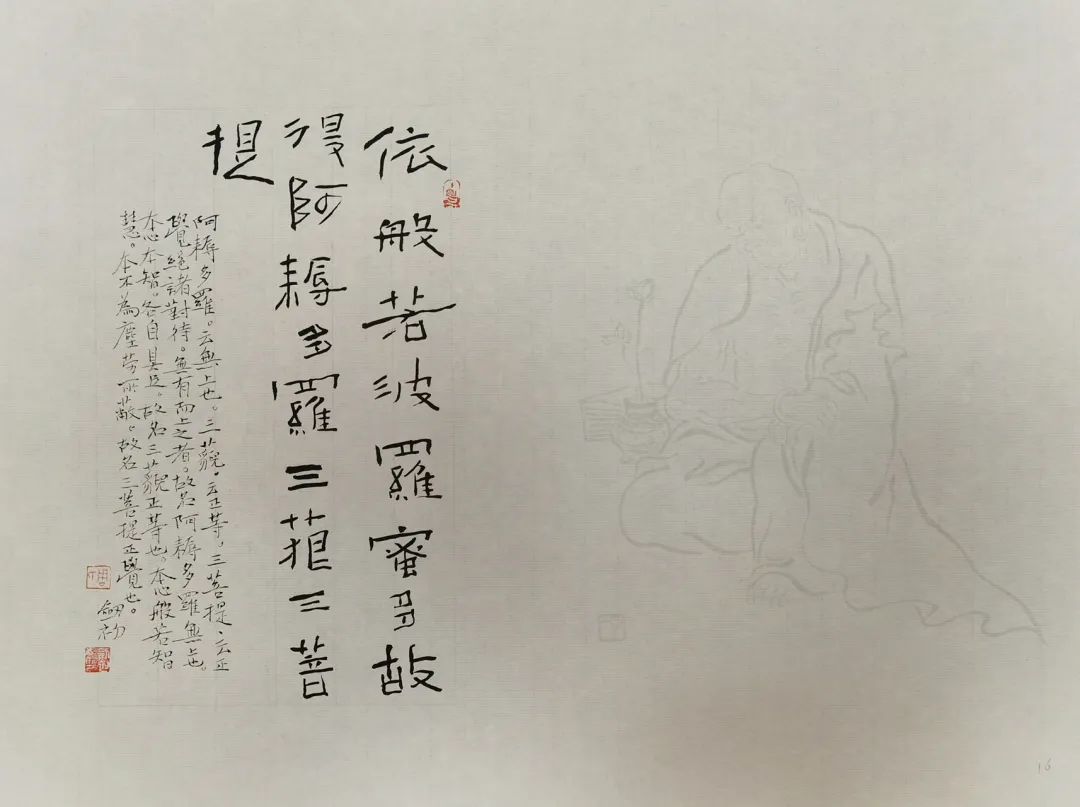 依般若波羅蜜多故
得阿耨多羅三藐三菩
提
阿耨多羅。云無上也。三藐。云正等。三菩提、云正
覺絕諸對待。無有而上之者。故名阿耨多羅無上也。
本本智。各自具足。故名三藐正等也。本心般若智
慧。本不為塵勞所蔽。故名三菩提正覺也。
16